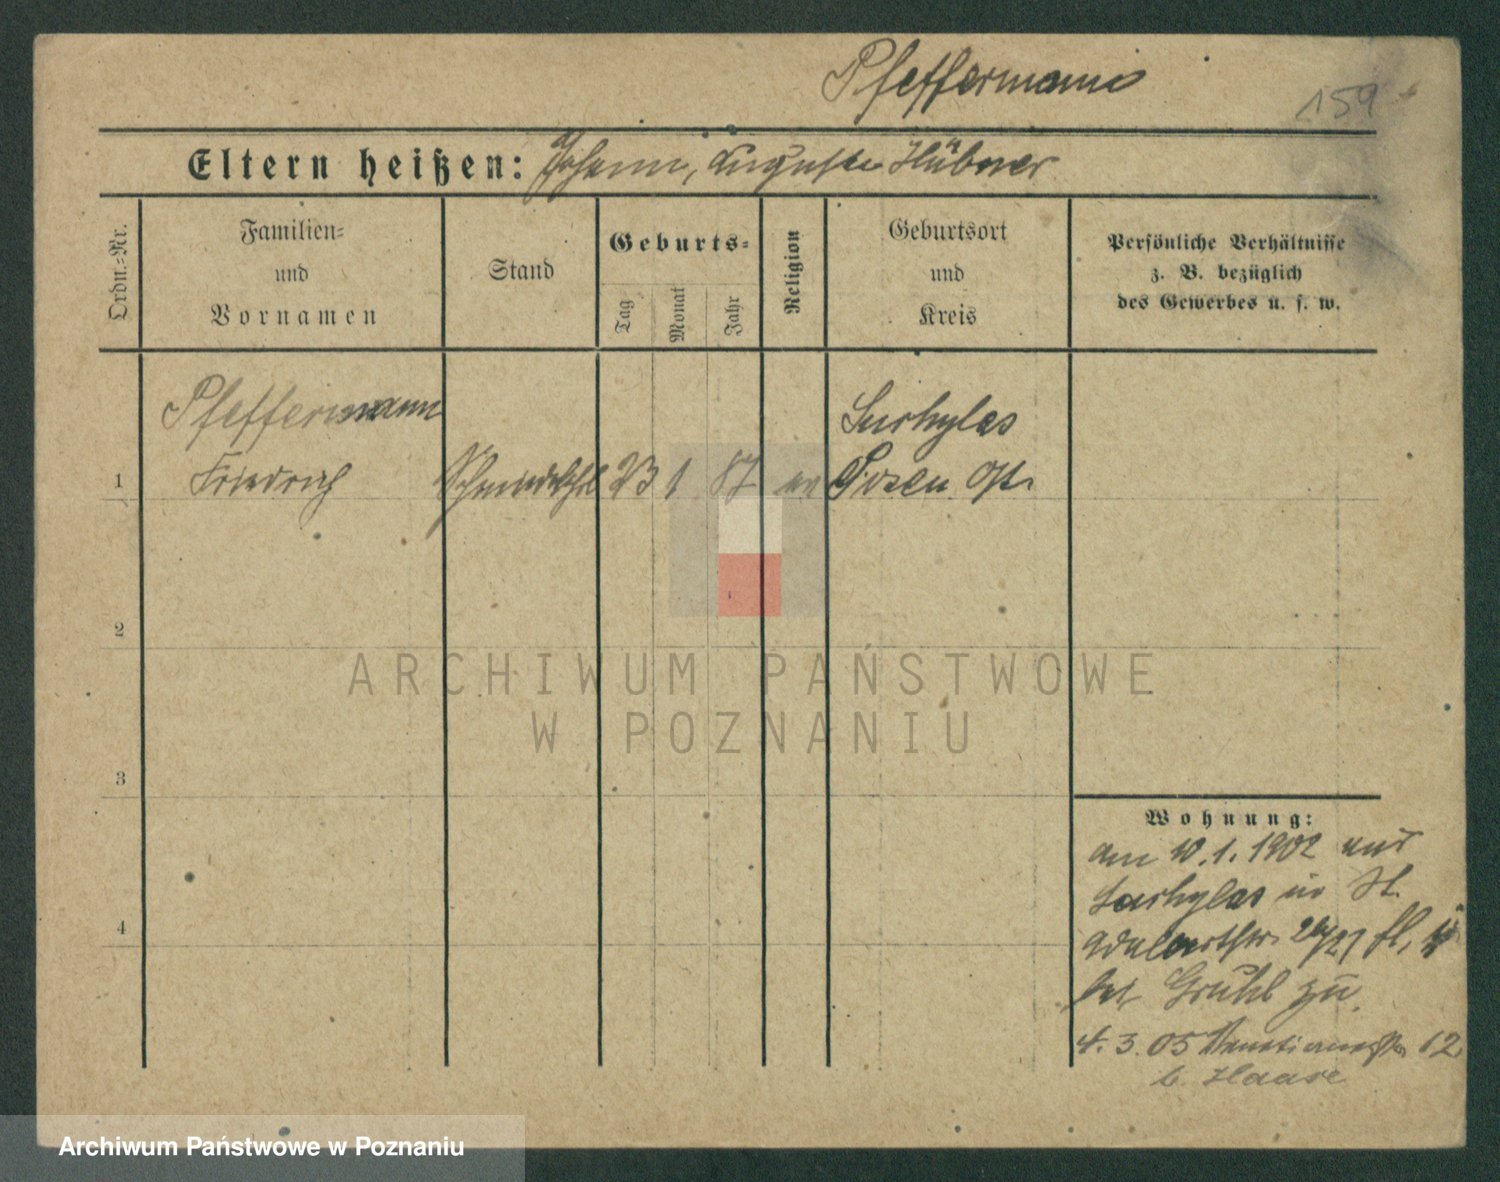 Pfeffermann
159
Eltern heißen: Johann, Auguste Hübner
Ordn.-Nr.
Familien-
und
Vornamen
Stand
Geburts-
Tag
Monat
Jahr
Religion
Geburtsort
und
Kreis
Persönliche Verhältnisse
z. B. bezüglich
des Gewerbes u. s. w.
Pfeffermann
1 Friedrich 23 1 87 ev Posen Ost
2
3
4
Wohnung:
am 10.1.1902 aus
in St.
Adalbertstr. 26/27
bei Gruhl zu
4.3.05 Venetianerstr 12
b. Haase
ARCHIWUM PAŃSTWOWE
W POZNANIU
Archiwum Państwowe w Poznaniu